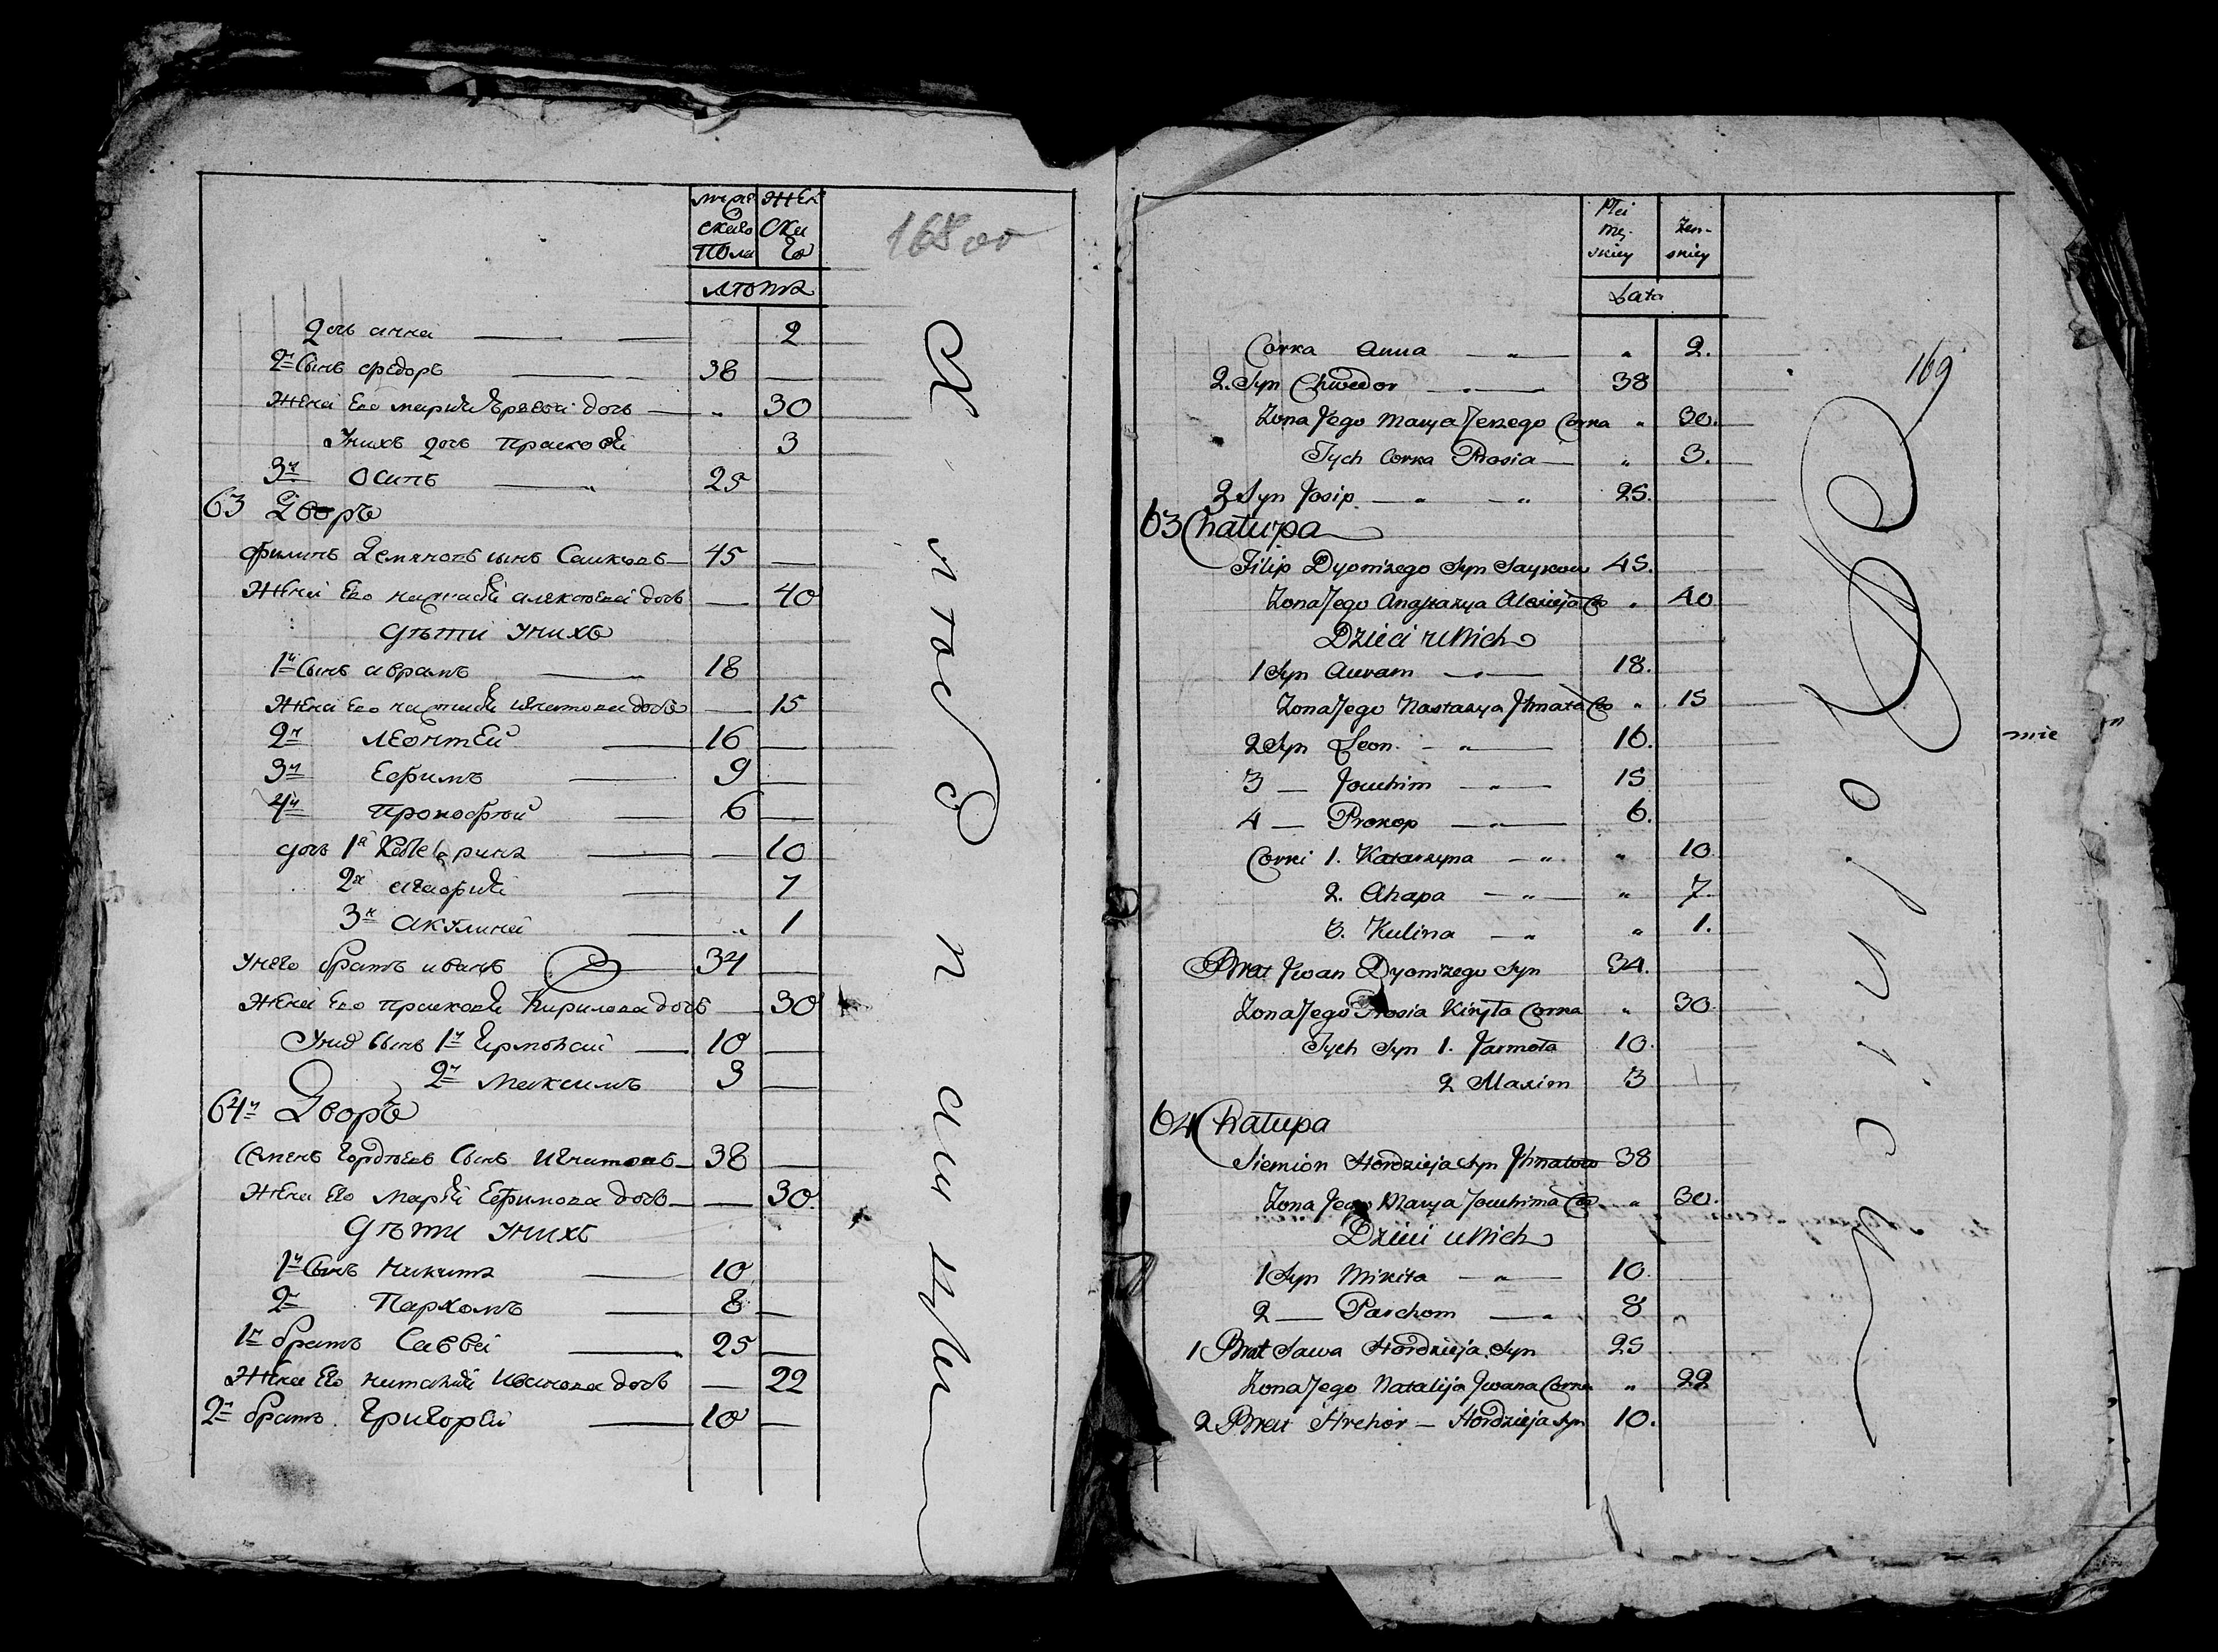 мужескаго пола женскаго
168 об
лѣта
дочь анна 2
2й Сынъ федоръ 38
Жена Его марья Юрьева дочь 30
Унихъ дочь прасковья 3
3й Осипъ 25
63 Дворъ
филипъ Демяновъ сынъ Сайковъ 45
Жена Его настасья алексеева дочь 40
Дѣти Унихъ
1й Сынъ аврамъ 18
Жена Его настасья игнатова дочь 15
2й леонтей 16
3й Ефимъ 9
4й прокофей 6
дочь 1я Катерина 10
2я агафья 7
3я акулина 1
Унего братъ иванъ 34
Жена Его прасковья Кирилова дочь 30
Унихъ Сынъ 1й Ермолай 10
2й максимъ 3
64й Дворъ
Семенъ гордѣевъ Сынъ игнатовъ 38
Жена Его марья Ефимова дочь 30.
Дѣти Унихъ
1й Сынъ никита 10
2й Пархомъ 8
1й братъ Савва 25
Жена Его наталья иванова дочь 22
2й братъ григорей 10
Płci Męskiey Żenskiey
Lata
169
Corka Anna " " 2.
2. Syn Chwedor " 38
Zona Jego Marya Jerzego Corka " 30.
Tych Corka Prosia " 3.
3 Syn Josip " " 25.
63 Chałupa
Filip Dyonizego Syn Saykow 45.
Zona Jego Anastazya Alexieja Co " 40
Dzieci u Nich
1 Syn Auram " 18.
Zona Jego Nastazya Ihnata Co " 15
2 Syn Leon " 16.
3 — Jouchim " 15
4 — Prokop " 6.
Corki 1. Katarzyna " " 10
2. Ahapa " " 7.
3. Kulina " " 1.
Brat Jwan Dyonizego Syn 34.
Zona Jego Prosia Kiryła Corka " 30
Tych Syn 1. Jarmoła 10.
2 Maxim 3
64 Chałupa
Siemion Hordzieja Syn Ihnatow 38
Zona Jego Marya Jouchima Co " 30.
Dzieci u Nich
1 Syn Mikita " 10.
2 — Parchom " 8
1 Brat Sawa Hordzieja Syn 25
Zona Jego Natalija Jwana Corka " 22
2 Brat Hrehor — Hordzieja Syn 10.
mie